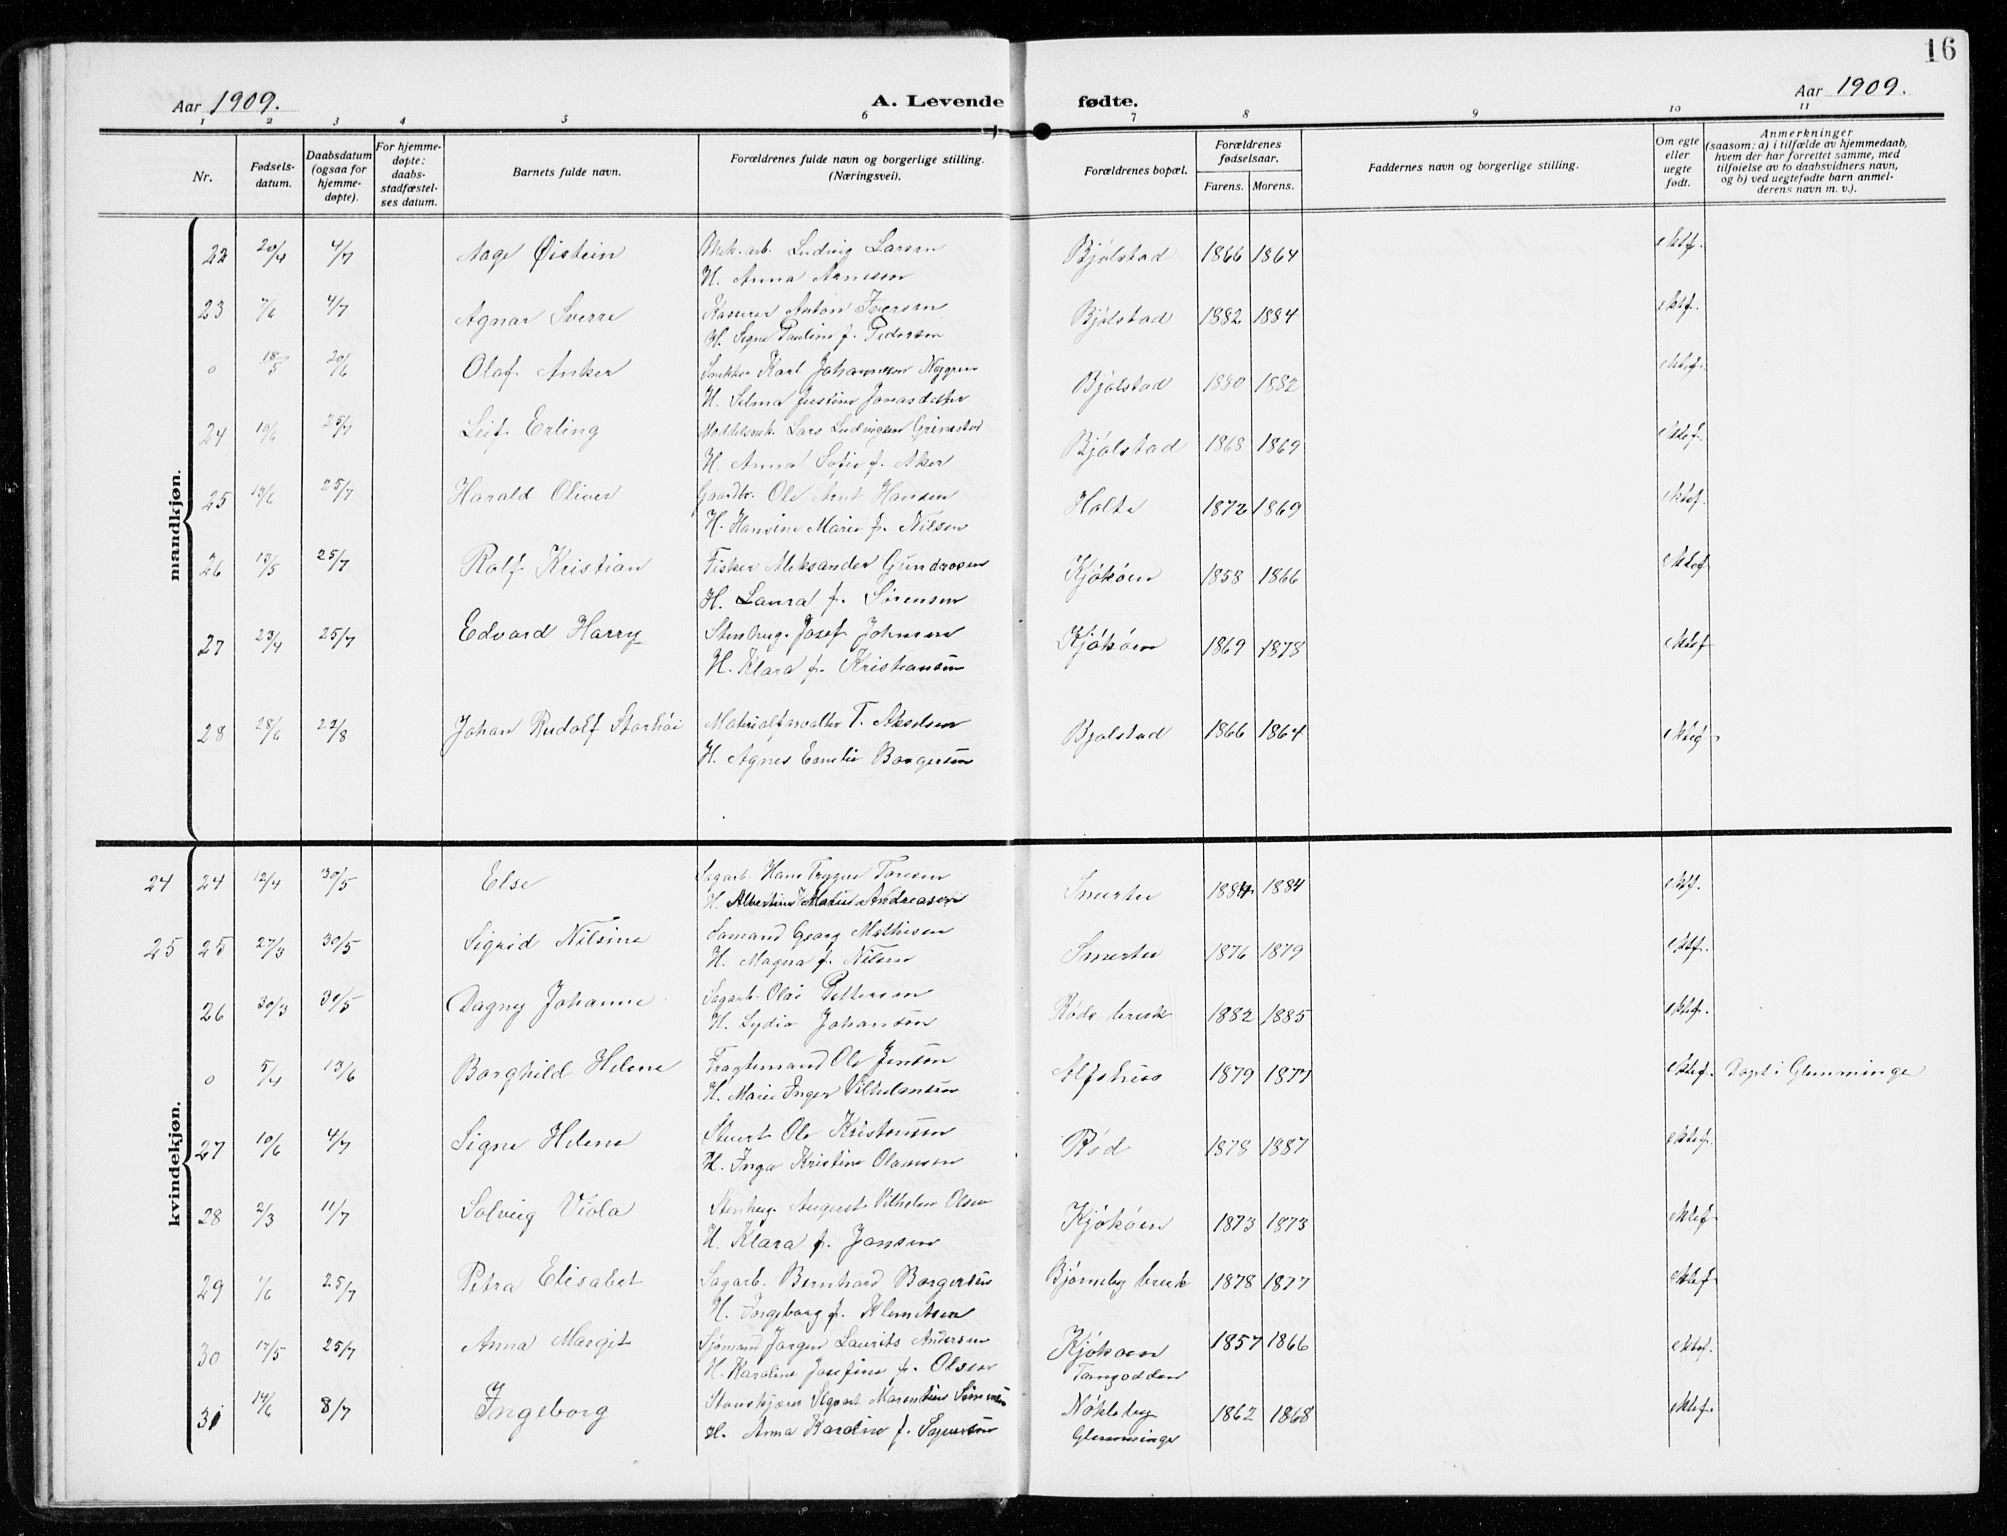 16
Aar 1909.
A. Levende fødte.
Aar 1909.
1 2 3 4 5 6 7 8 9 10 11
Nr.
Fødsels-
datum.
Daabsdatum
(ogsaa for
hjemme-
døpte).
For hjemme-
døpte:
daabs-
stadfæstel-
ses datum.
Barnets fulde navn.
Forældrenes fulde navn og borgerlige stilling.
(Næringsvei).
Forældrenes bopæl.
Forældrenes
fødselsaar.
Farens. Morens.
Faddernes navn og borgerlige stilling.
Om egte
eller
uegte
født.
Anmerkninger
(saasom: a) i tilfælde av hjemmedaab,
hvem der har forrettet samme, med
tilføielse av to daabsvidners navn,
og b) ved uegtefødte barn anmel-
derens navn m. v.).
mandkjøn.
22 20/4 4/7 Aage Øistein Mek. arb. Ludvig Larsen Bjølstad 1866 1864 Ektf.
H. Anna Arnesen
23 7/6 4/7 Agnar Sverre Anton Iversen Bjølstad 1882 1884 Ektf.
H. Signe Pauline f. Pedersen
o 18/5 20/6 Olaf Anker Snekker Karl Johannesen Nygren Bjølstad 1880 1882 Ektef.
H. Selma Justine Jonasdatter
24 10/6 25/7 Leif Erling Modelsnek. Lars Ludvigsen Grimstad Bjølstad 1868 1869 Ektef.
H. Anna Sofie f. Aker
25 13/6 25/7 Harald Oliver Gaardbr. Ole Arnt Hansen Holte 1872 1869 Ektef.
H. Hansine Marie f. Nilsen
26 13/5 25/7 Rolf Kristian Fisker Aleksander Gundrosen Kjøkøen 1858 1866 Ektef.
H. Laura f. Sørensen
27 23/4 25/7 Edvard Harry Stenhug. Josef Johnsen Kjøkøen 1869 1878 Ektef.
H. Klara f. Kristiansen
28 28/6 22/8 Johan Rudolf Storhöi Materialforvalter T. Akselsen Bjølstad 1866 1864 Ekteg
H. Agnes Emelie Borgersen
kvindekjøn.
24 24 12/4 30/5 Else Sagarb. Hans Trygve Toresen Smertu 1884 1884 Ektf.
H. Albertine Marie Andreasen
25 25 27/3 30/5 Sigrid Nilsine Sømand Georg Mathisen Smertu 1876 1879 Ektf.
H. Magna f. Nilsen
26 30/3 30/5 Dagny Johanne Sagarb. Olai Pettersen Røds bruk 1882 1885 Ektef.
H. Lydia Johansen
o 5/4 13/6 Borghild Helene Fragtemand Ole Jensen Alfshus 1879 1877 Ektef. Døpt i Glemminge
H. Marie Inger Vilhelmsen
27 10/6 4/7 Signe Helene Stuert Ole Kristensen Rød 1878 1887 Ektef.
H. Inga Kristine Olaussen
28 2/3 11/7 Solveig Viola Stenhug. August Vilhelm Olsen Kjøkøen 1873 1873 Ektef.
H. Klara f. Jansen
29 1/6 25/7 Petra Elisabet Sagarb. Bernhard Borgersen Bjørneby bruk 1878 1877 Ektef.
H. Ingeborg f. Klemetsen
30 17/5 25/7 Anna Margit Sjømand Jørgen Laurits Andersen Kjøkøen 1857 1866 Ektef.
H. Karoline Josefine f. Olsen Tangodden
31 14/6 8/7 Ingeborg Sigvart Marentius Nøkleby 1862 1868 Ektef.
H. Anna Karoline f. Glemminge